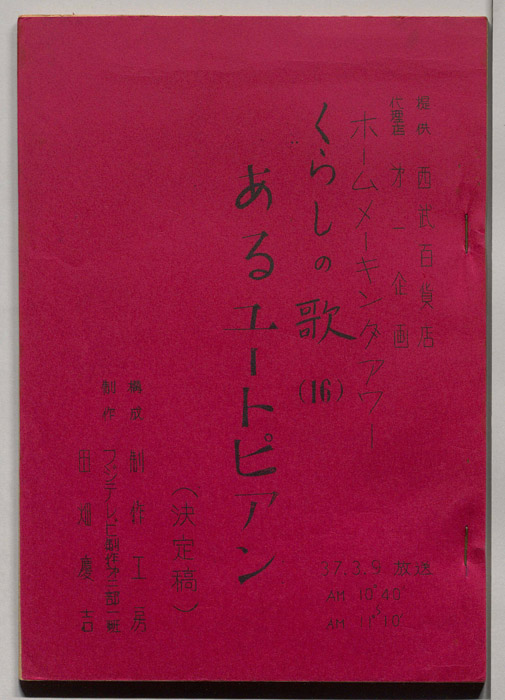 提供 西武百貨店
代理店 第一企画
ホームメーキングアワー
くらしの歌 (16)
あるユートピアン
(決定稿)
37.3.9 放送
AM 10.40
AM 11.10
構成 制作工房
制作 フジテレビ制作第二部一班
田畑慶吉